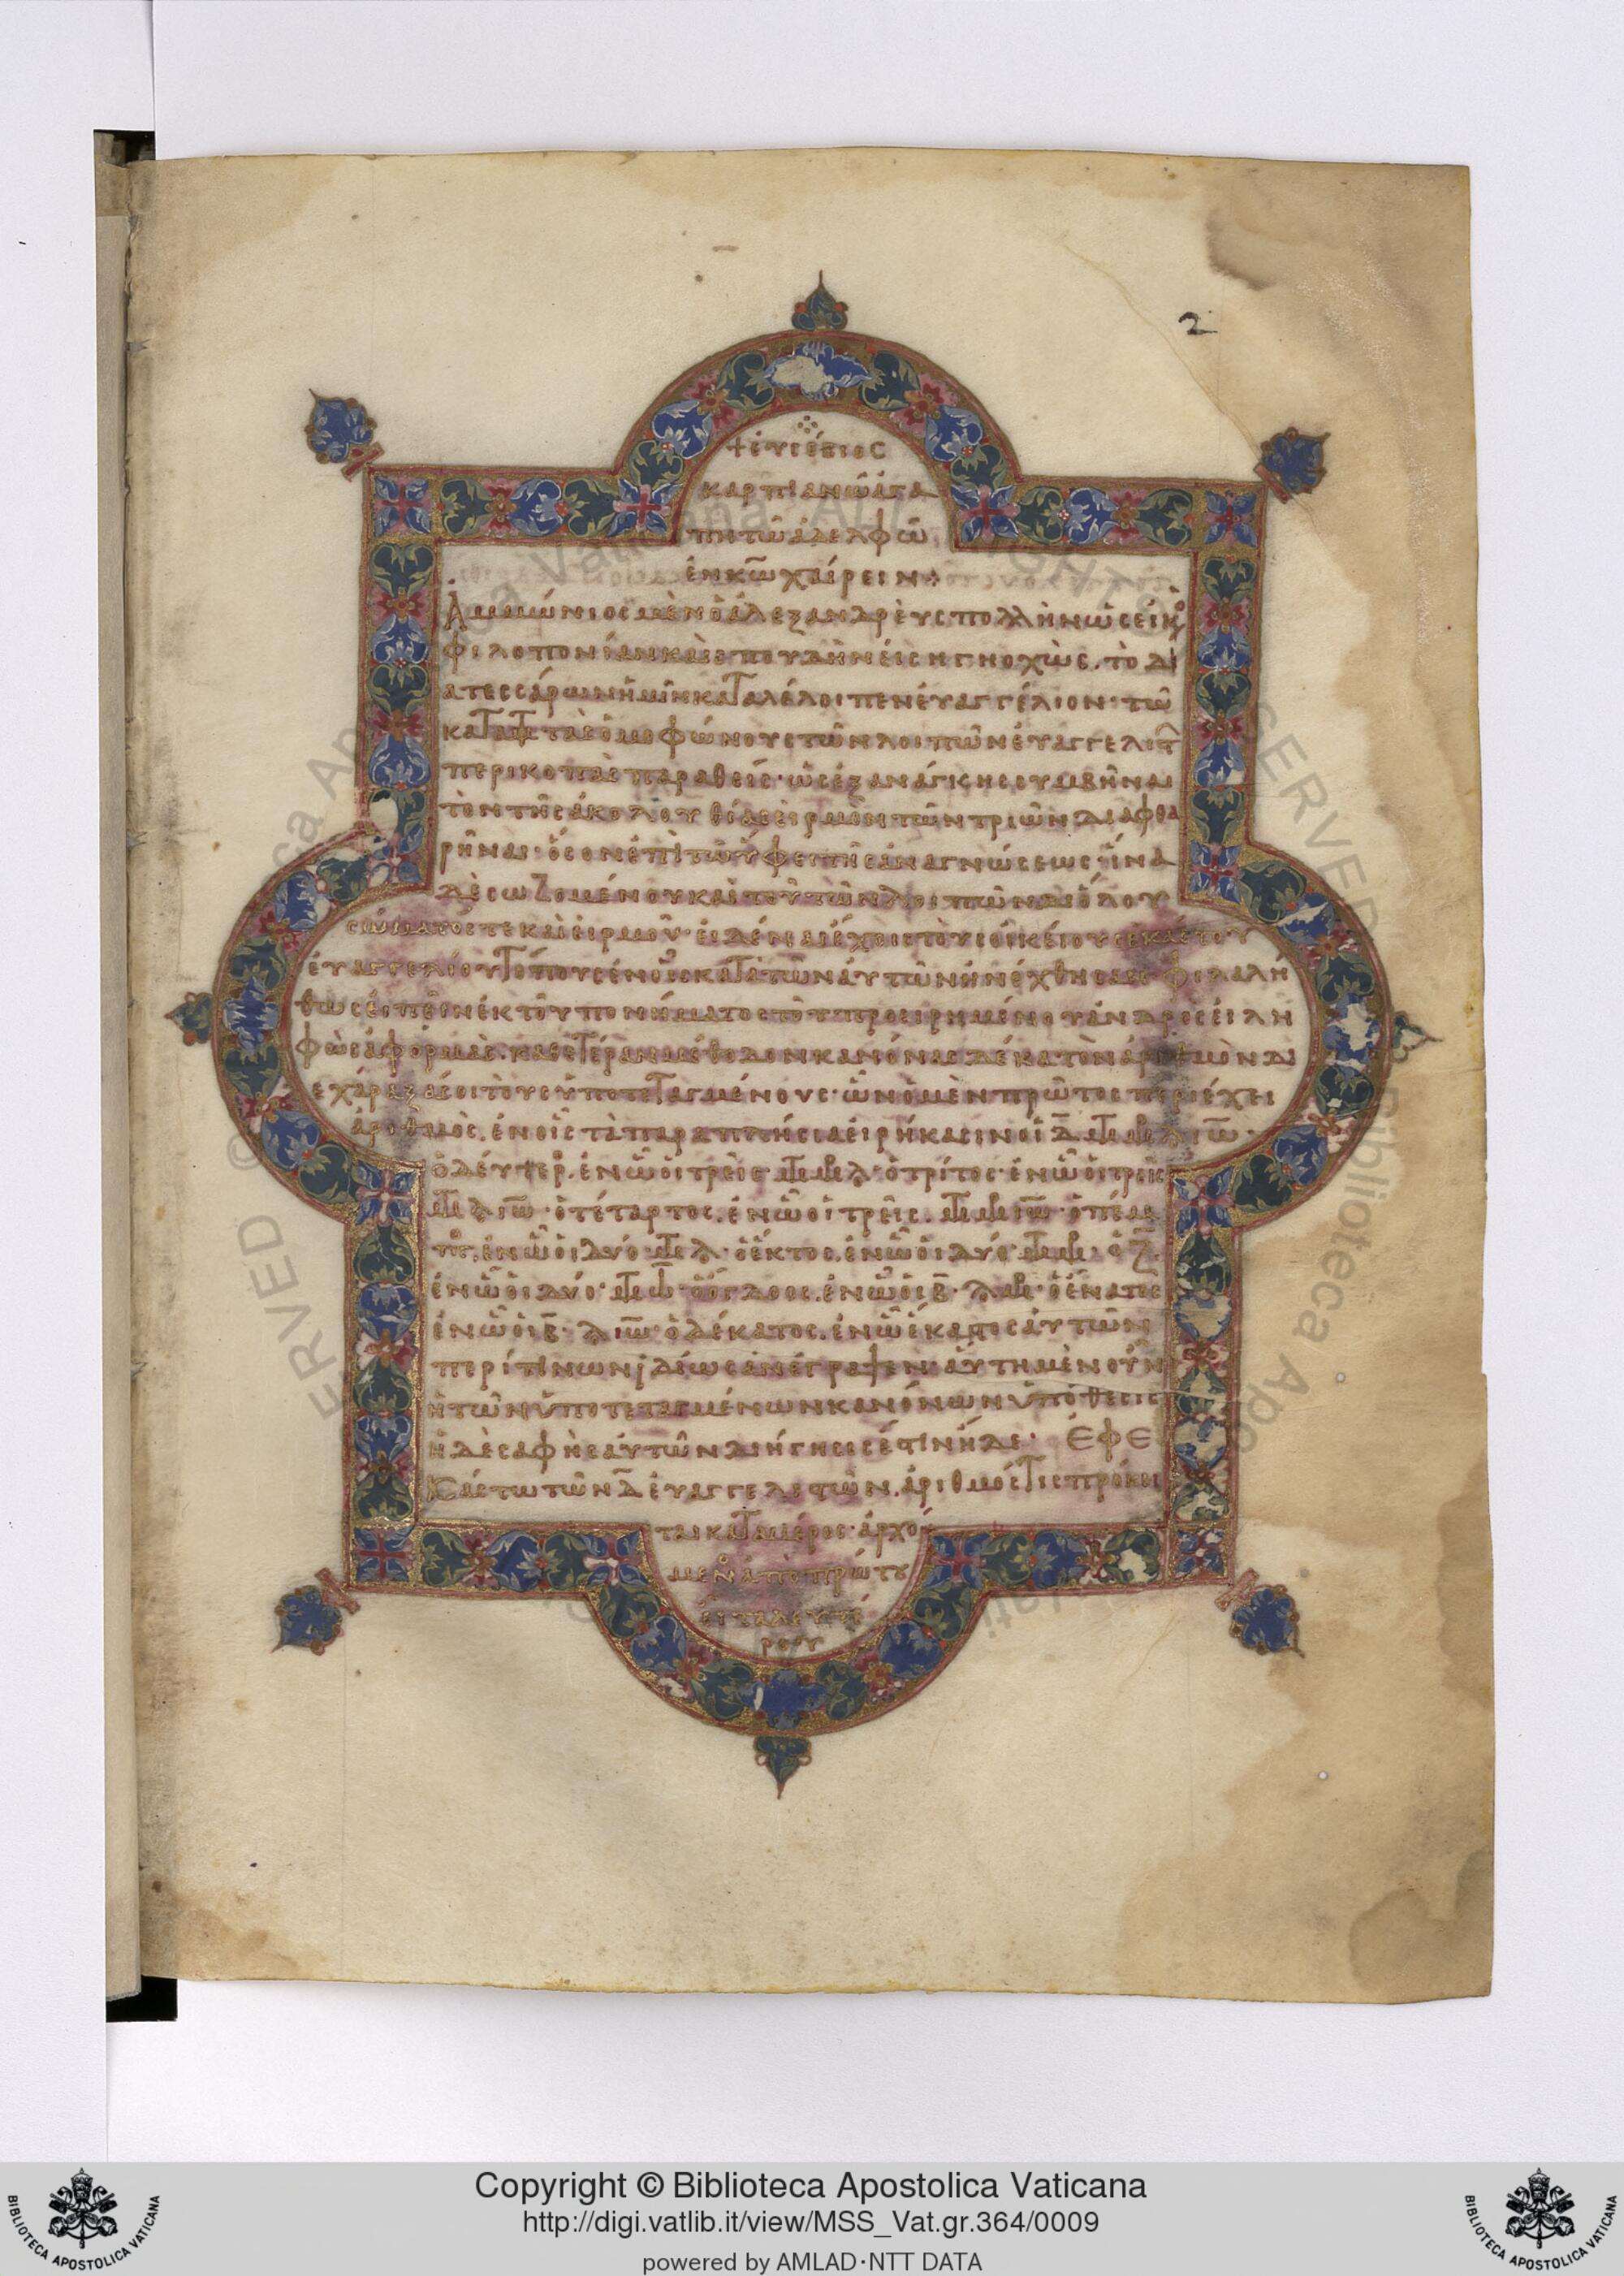 2
+ εὐσέβιος
καρπιανῶ ἀγα
πητῶ ἀδελφῶ
ἐν κ̅ω̅ χαίρειν +
Ἀμμώνιος μὲν ὁ ἀλεξανδρεὺς πολλὴν ὡς εἰκὸ
φιλοπονίαν καὶ σπουδὴν εἰσηγηοχὼς. τὸ δι
ατεσσάρων ἡμῖν καταλέλοιπεν εὐαγγέλιον· τῶ
κατα μτ τὰς ὁμοφώνους τῶν λοιπῶν εὐαγγελιστ
περικοπὰς παραθείς· ὡς ἐξ ανάγκης συμβῆναι
τὸν τῆς ἀκολουθίας εἱρμὸν τῶν τριῶν διαφθα
ρῆναι· ὅσον ἐπὶ τῶ ὕφει τῆς ἀναγνώσεως· ἵνα
δὲ σωζομένου καὶ τοῦ τῶν λοιπῶν δι ὅλου
σώματός τε καὶ εἱρμοῦ· εἰδέναι ἔχοις τοὺς οἰκείους ἑκάστου
εὐαγγελίου τόπους ἐν οἷς κατὰ τῶν αὐτῶν ἠνέχθησαν φιλαλή
θως εἰπεῖν ἐκ τοῦ πονήματος τοῦ προειρημένου ἀνδρὸς εἰλη
φὼς ἀφορμὰς. καθ ετέραν μέθοδον κανόνας δέκα τὸν ἀριθμὸν δι
εχάραξά σοι τοὺς ὑποτεταγμένους· ὧν ὁ μὲν πρῶτος περιέχει
ἀριθμοὺς. ἐν οἷς τὰ παραπλήσια εἰρήκασιν οἱ δ̅ μτ μρ λ ιω·
ὁ δεύτερ. ἐν ῶ οἱ τρεῖς· μτ μρ λ· ὁ τρίτος· ἐν ῶ οἱ τρεῖς
μτ λ ιω· ὁ τέταρτος. ἐν ῶ οἱ τρεῖς. μτ μρ ιω· ὁ πέμ
πτ. ἐν ῶ οἱ δύο μτ λ· ὁ ἕκτος. ἐν ῶ οἱ δύο μτ μρ· ὁ ζ̅
ἐν ῶ οἱ δύο· μτ ιω· ὁ ὄγδοος. ἐν ῶ οἱ β̅· λ μρ· ὁ ἔνατος
ἐν ῶ οἱ β̅· λ ιω· ὁ δέκατος. ἐν ῶ ἕκαστος αὐτῶν
περί τινων ἰδίως ἀνέγραψεν· αὕτη μὲν οὖν
ἡ τῶν ὑποτεταγμένων κανόνων ὑπόθεσις
ἡ δὲ σαφὴς αὐτῶν διήγησις ἐστὶν ἥδε· Ἐφ ἑ
Κάστω τῶν δ̅ εὐαγγελιστῶν. ἀριθμός τις πρόκει
ται κατὰ μέρος· ἀρχό
μεν ἀπὸ πρώτου
εἶτα δευτέ
ρου
Copyright © Biblioteca Apostolica Vaticana
http://digi.vatlib.it/view/MSS_Vat.gr.364/0009
powered by AMLAD·NTT DATA
BIBLIOTECA APOSTOLICA VATICANA
BIBLIOTECA APOSTOLICA VATICANA